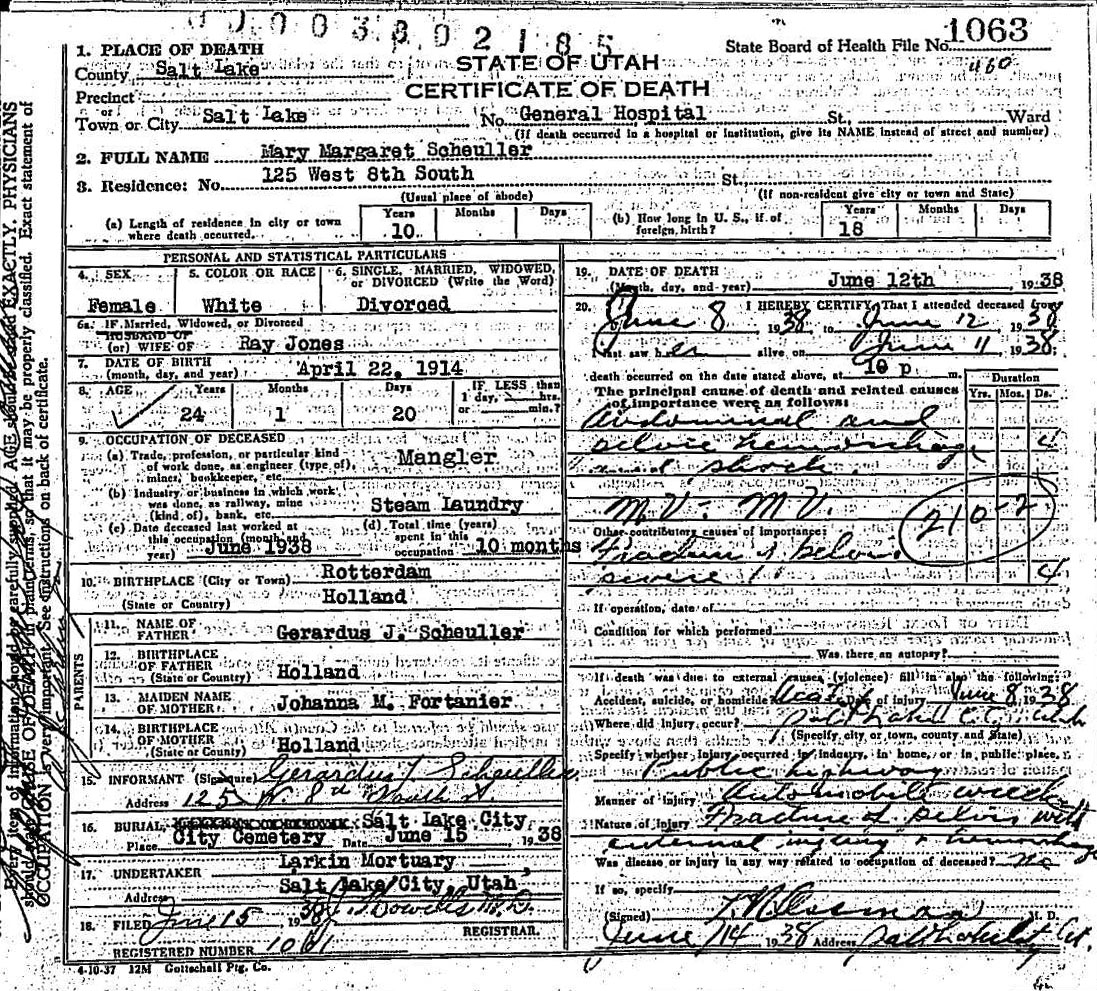 0003302185
1063
State Board of Health File No.
460
1. PLACE OF DEATH
County Salt Lake
STATE OF UTAH
CERTIFICATE OF DEATH
Precinct
or
Town or City Salt Lake No. General Hospital St., Ward
(If death occurred in a hospital or institution, give its NAME instead of street and number)
2. FULL NAME Mary Margaret Scheuller
3. Residence: No. 125 West 8th South St.
(Usual place of abode) (If non-resident give city or town and State)
(a) Length of residence in city or town where death occurred. Years 10 Months Days
(b) How long in U. S., if of foreign birth? Years 18 Months Days
PERSONAL AND STATISTICAL PARTICULARS
4. SEX 5. COLOR OR RACE 6. SINGLE, MARRIED, WIDOWED, or DIVORCED (Write the Word)
Female White Divorced
6a. IF Married, Widowed, or Divorced
HUSBAND OF
(or) WIFE OF Ray Jones
7. DATE OF BIRTH
(month, day, and year) April 22, 1914
8. AGE Years Months Days IF LESS than
1 day, hrs.
or min.?
24 1 20
9. OCCUPATION OF DECEASED
(a) Trade, profession, or particular kind
of work done, as engineer (type of),
miner, bookkeeper, etc. Mangler
(b) Industry or business in which work
was done, as railway, mine
(kind of), bank, etc. Steam Laundry
(c) Date deceased last worked at
this occupation (month and
year) June 1938
(d) Total time (years)
spent in this
occupation 10 months
10. BIRTHPLACE (City or Town) Rotterdam
(State or Country) Holland
PARENTS
11. NAME OF
FATHER Gerardus J. Scheuller
12. BIRTHPLACE
OF FATHER
(State or Country) Holland
13. MAIDEN NAME
OF MOTHER Johanna M. Fortanier
14. BIRTHPLACE
OF MOTHER
(State or County) Holland
15. INFORMANT (Signature) Gerardus J. Scheuller
Address 125 W. 8th South St.
16. BURIAL, Salt Lake City,
Place City Cemetery Date June 15, 1938
17. UNDERTAKER Larkin Mortuary,
Address Salt Lake City, Utah
18. FILED June 15 1938 M.D.
REGISTRAR.
REGISTERED NUMBER 1061
4-10-37 12M Gottschall Ptg. Co.
19. DATE OF DEATH
(Month, day, and year) June 12th, 1938
20. I HEREBY CERTIFY, That I attended deceased from
June 8 1938 to June 12 1938
I last saw her alive on June 11 1938;
death occurred on the date stated above, at 10 p m.
The principal cause of death and related causes
of importance were as follows:
Duration
Yrs. Mos. Ds.
Abdominal and
pelvic hemorrhage 4
and shock
M.V. - M.V.
210-2
Other contributory causes of importance:
Fracture of pelvis
severe 4
If operation, date of
Condition for which performed
Was there an autopsy?
If death was due to external causes (violence) fill in also the following:
Accident, suicide, or homicide Date of injury June 8, 1938
Where did injury occur? Salt Lake City, Utah
(Specify city or town, county and State)
Specify whether injury occurred in industry, in home, or in public place,
Public highway
Manner of injury Automobile wreck
Nature of injury Fracture of pelvis with
internal injury & hemorrhage
Was disease or injury in any way related to occupation of deceased? no
If so, specify
(Signed) M. D.
June 14 1938 Address Salt Lake City Ut.